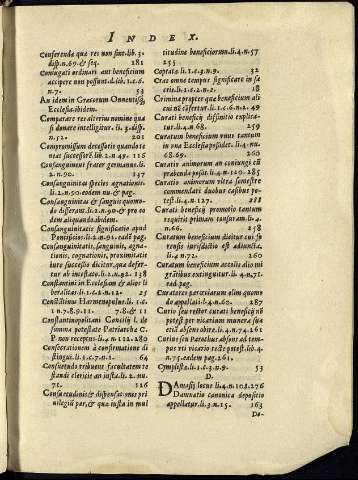 INDEX.
Conferenda quæ res non sint.lib.3.
disp.n.69.& seq. 181
Coniugati ordinari aut beneficium
accipere non possunt.d.lib.1.c.6.
n.7. 53
An idem in Græcorum Orientisq́;
Ecclesia.ibidem.
Comparare res alterius nomine qua
si donare intelligitur. li.3.disp.
n.52. 201
Compromissum decessatio quando te
neat successorē.lib.2.n.49. 116
Consanguineus frater germanus.li.
2.n.90. 137
Consanguinitas species agnationis.
li.2.n.90.eodem nu.& pag.
Consanguinitas & sanguis quomo-
do differant.li.2.n.90.& pro eo
dem aliquando.ibidem.
Consanguinitatis significatio apud
Pontificios.li.2.n.91.eadem pag.
Consanguinitatis, sanguinis, agna-
tionis, cognationis, proximitatis
iure successio dicitur, quæ defer-
tur ab intestato.li.2.n.92. 138
Constantini in Ecclesiam & alios li
beralitas.li.1.c.2.n.12. 25
Constantinus Harmenopolus.li.1.c.
1.n.7.8.9.11. 7.8.& 11
Constantinopolitani Concilij I. de
summa potestate Patriarchæ C.
P.non receptus.li.4.n.112. 280
Consecrationem à confirmatione di
stingui.li.1.c.7.n.1. 64
Consuetudo tribuens facultatem te
standi clericis an iusta.li.2.nu.
71. 126
Consuetudinis & dispensationis pri
uilegium par,& qua iusta in mul
titudine beneficiorum.li.4.n.57
255
Coptata.li.1.c.3.n.9. 32
Cras omne tempus significare in sa
cris.li.1.c.2.n.2. 18
Crimina propter quæ beneficium ali
cui nō cōfertur.li.1.c.6.n.1. 49
Curati beneficij diffinitio explica-
tur.li.4.n.68. 259
Curatum beneficium unus tantum
in una Ecclesia possidet.li.4.nu.
68.69. 260
Curatio animorum an coniungi cū
præbenda possit.li.4.n.129. 285
Curatio animorum ultra semestre
commendari duobus casibus po-
test.li.4.n.137. 288
Curati beneficij promotio tantum
requirit primum tonsuram li.4.
n.66. 258
Curatum beneficium dicitur cui fo
rensis iurisdictio est adiuncta.
li.4.n.72. 260
Curatum beneficium accolis alic mi
gratibus extinguitur. li.4.n.71.
ead.pag.
Curatores parasitarum olim quomo
do appellati.li.4.n.62. 287
Curio seu rector curati beneficij an
potest per vicarium munera sua
etiā absens obire.li.4.n.74.261
Curius seu Parochus absens ad tem-
pus per vicario recte potest.lib.4.
n.75.eadem pag.261.
Cympsista.li.1.c.3.n.9. 33
D.
Damasij locus li.4.n.108.276
Damnatio canonica depositio
appellatur.li.3.n.15. 163
Da-